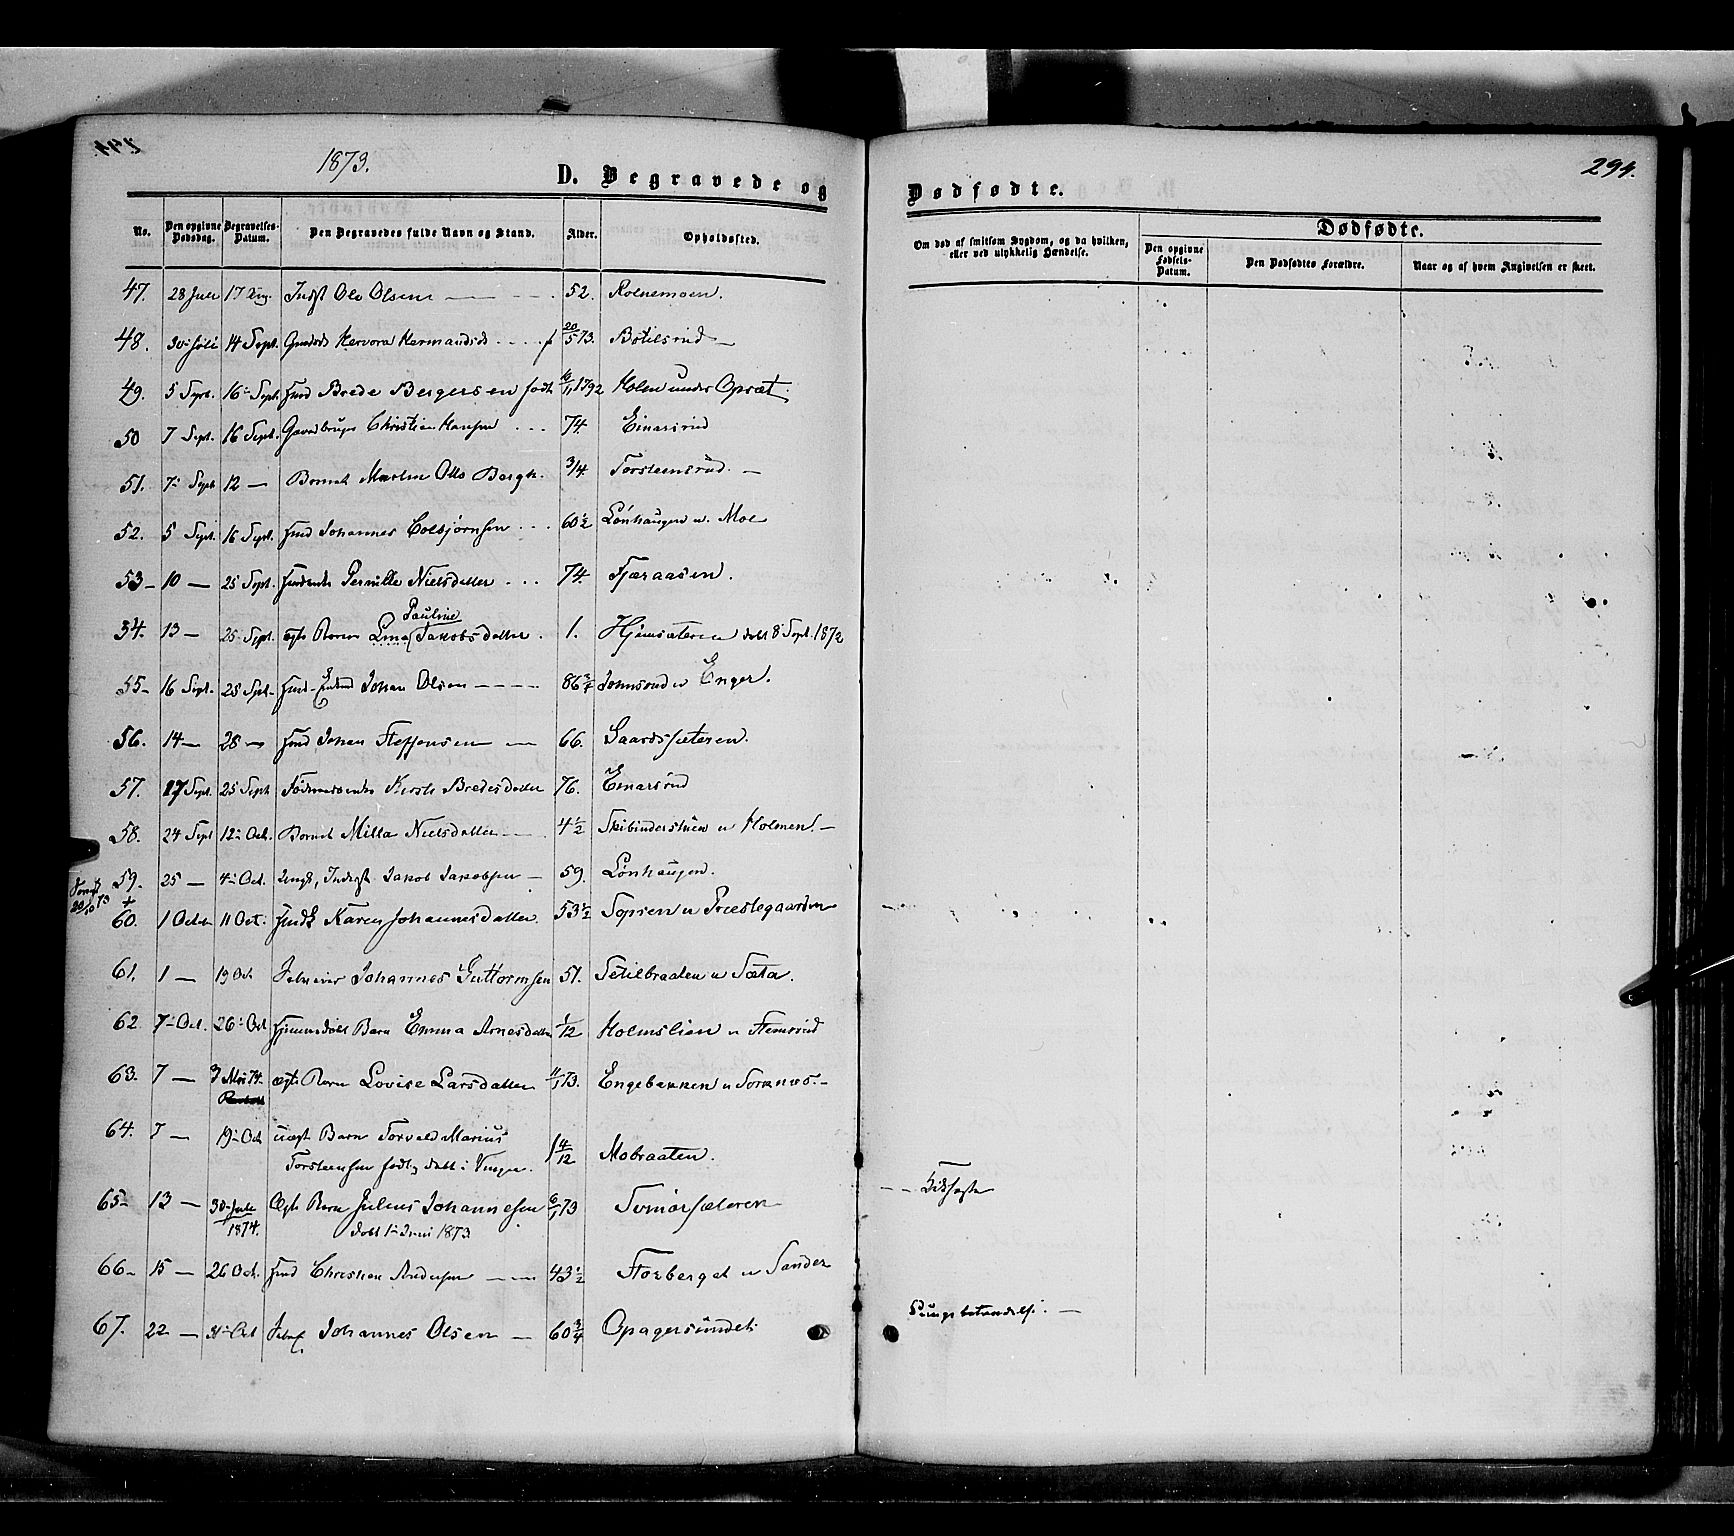 294.
1873.
D. Begravede og Dødfødte.
294.
No.
Den opgivne Dødsdag.
Begravelses-Datum.
Den Begravedes fulde Navn og Stand.
Alder.
Opholdssted.
Om død af smitsom Sygdom, og da hvilken, eller ved ulykkelig Hændelse.
Dødfødte.
Den opgivne Fødsels-Datum.
Den Dødfødtes Forældre.
Naar og af hvem Angivelsen er skeet.
47. 28 Juli 17 Aug. Indst Ole Olsen 52.
48. 30 Juli 14 Sept. Hermandsd f 20/5 73. Botilsrud
49. 5 Sept. 16 Sept. Brede Bergersen født 1792 Holm under Opsæt
50 7 Sept. 16 Sept. Christian Hansen 74. Einarsrud
51. 7 Sept 12 — Barnet Martin Otto Bergh. 3/4 Torsteensrud. —
52. 5 Sept. 16 Sept. Johannes Colbjørnsen 60 1/2 Lønhaugen u. Moe
53 — 10 — 25 Sept. Pernille Nielsdatter 74. Fjæraasen.
Pauline
54. 13 — 25 Sept. ægte Barn Lina Jakobsdatter. 1. døbt 8 Sept. 1872
55 — 16 Sept. 25 Sept. Johan Olsen 86 3/4 Johnsrud u Enger.
56. 14 — 28 — Johan Steffensen 66. Gaardssæteren.
57. 17 Sept. 25 Sept Kersti Bredesdatter 76. Einarsrud
58. 24 Sept 12 Oct. Barnet Milla Nielsdatter 4 1/2 u Holmen. —
59. 25 — 4 Oct. Ungk, Inderst Jakob Jakobsen — 59. Lønhaugen.
60. 1 Octob 11 Oct. Karen Johannesdatter. 53 1/2 Sopsen u Præstegaarden
61. 1 — 19 Oct Johannes Guttormsen 51. Setilbraaten u Sæta.
62 7 Oct. 26 Oct Hjemmedøbt Barn Emma Arnesdatter 1/12 Holmslien u
63. 7 — 3 Mai 74. ægte Barn Lovise Larsdatter 73. Engebakken u Sorknæs. —
64. 7 — 19 Oct uægt Barn Torvald Marius
Torsteensen født og døbt i Vinger. 1 4/12 Mobraaten.
65 — 13 — 30 Juli 1874. Ægte Barn Julius Johannesen 73
døbt 1 Juni 1873.
66 — 15 — 26 Oct. Christian Andersen 43 1/2 u Sander
67. 22 — 31 Oct Johannes Olsen — 60 3/4 Opagersundet
Lungebetændelse. —